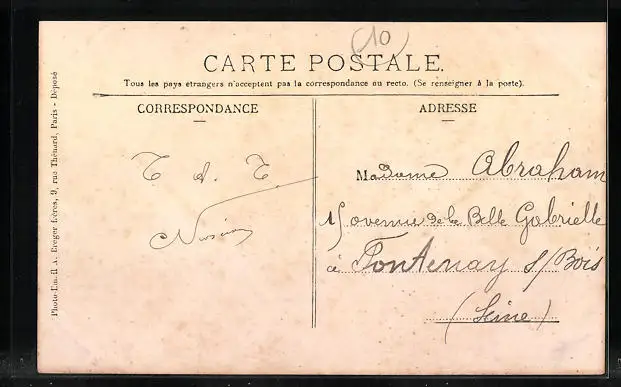 10
CARTE POSTALE.
Tous les pays étrangers n'acceptent pas la correspondance au recto. (Se renseigner à la poste).
CORRESPONDANCE
T. d. T.
ADRESSE
Madame Abraham
15 avenue de la Belle Gabrielle
à Fontenay s/Bois
(Seine)
Photo-Em. A. Breger frères, 9, rue Thénard, Paris - Déposé